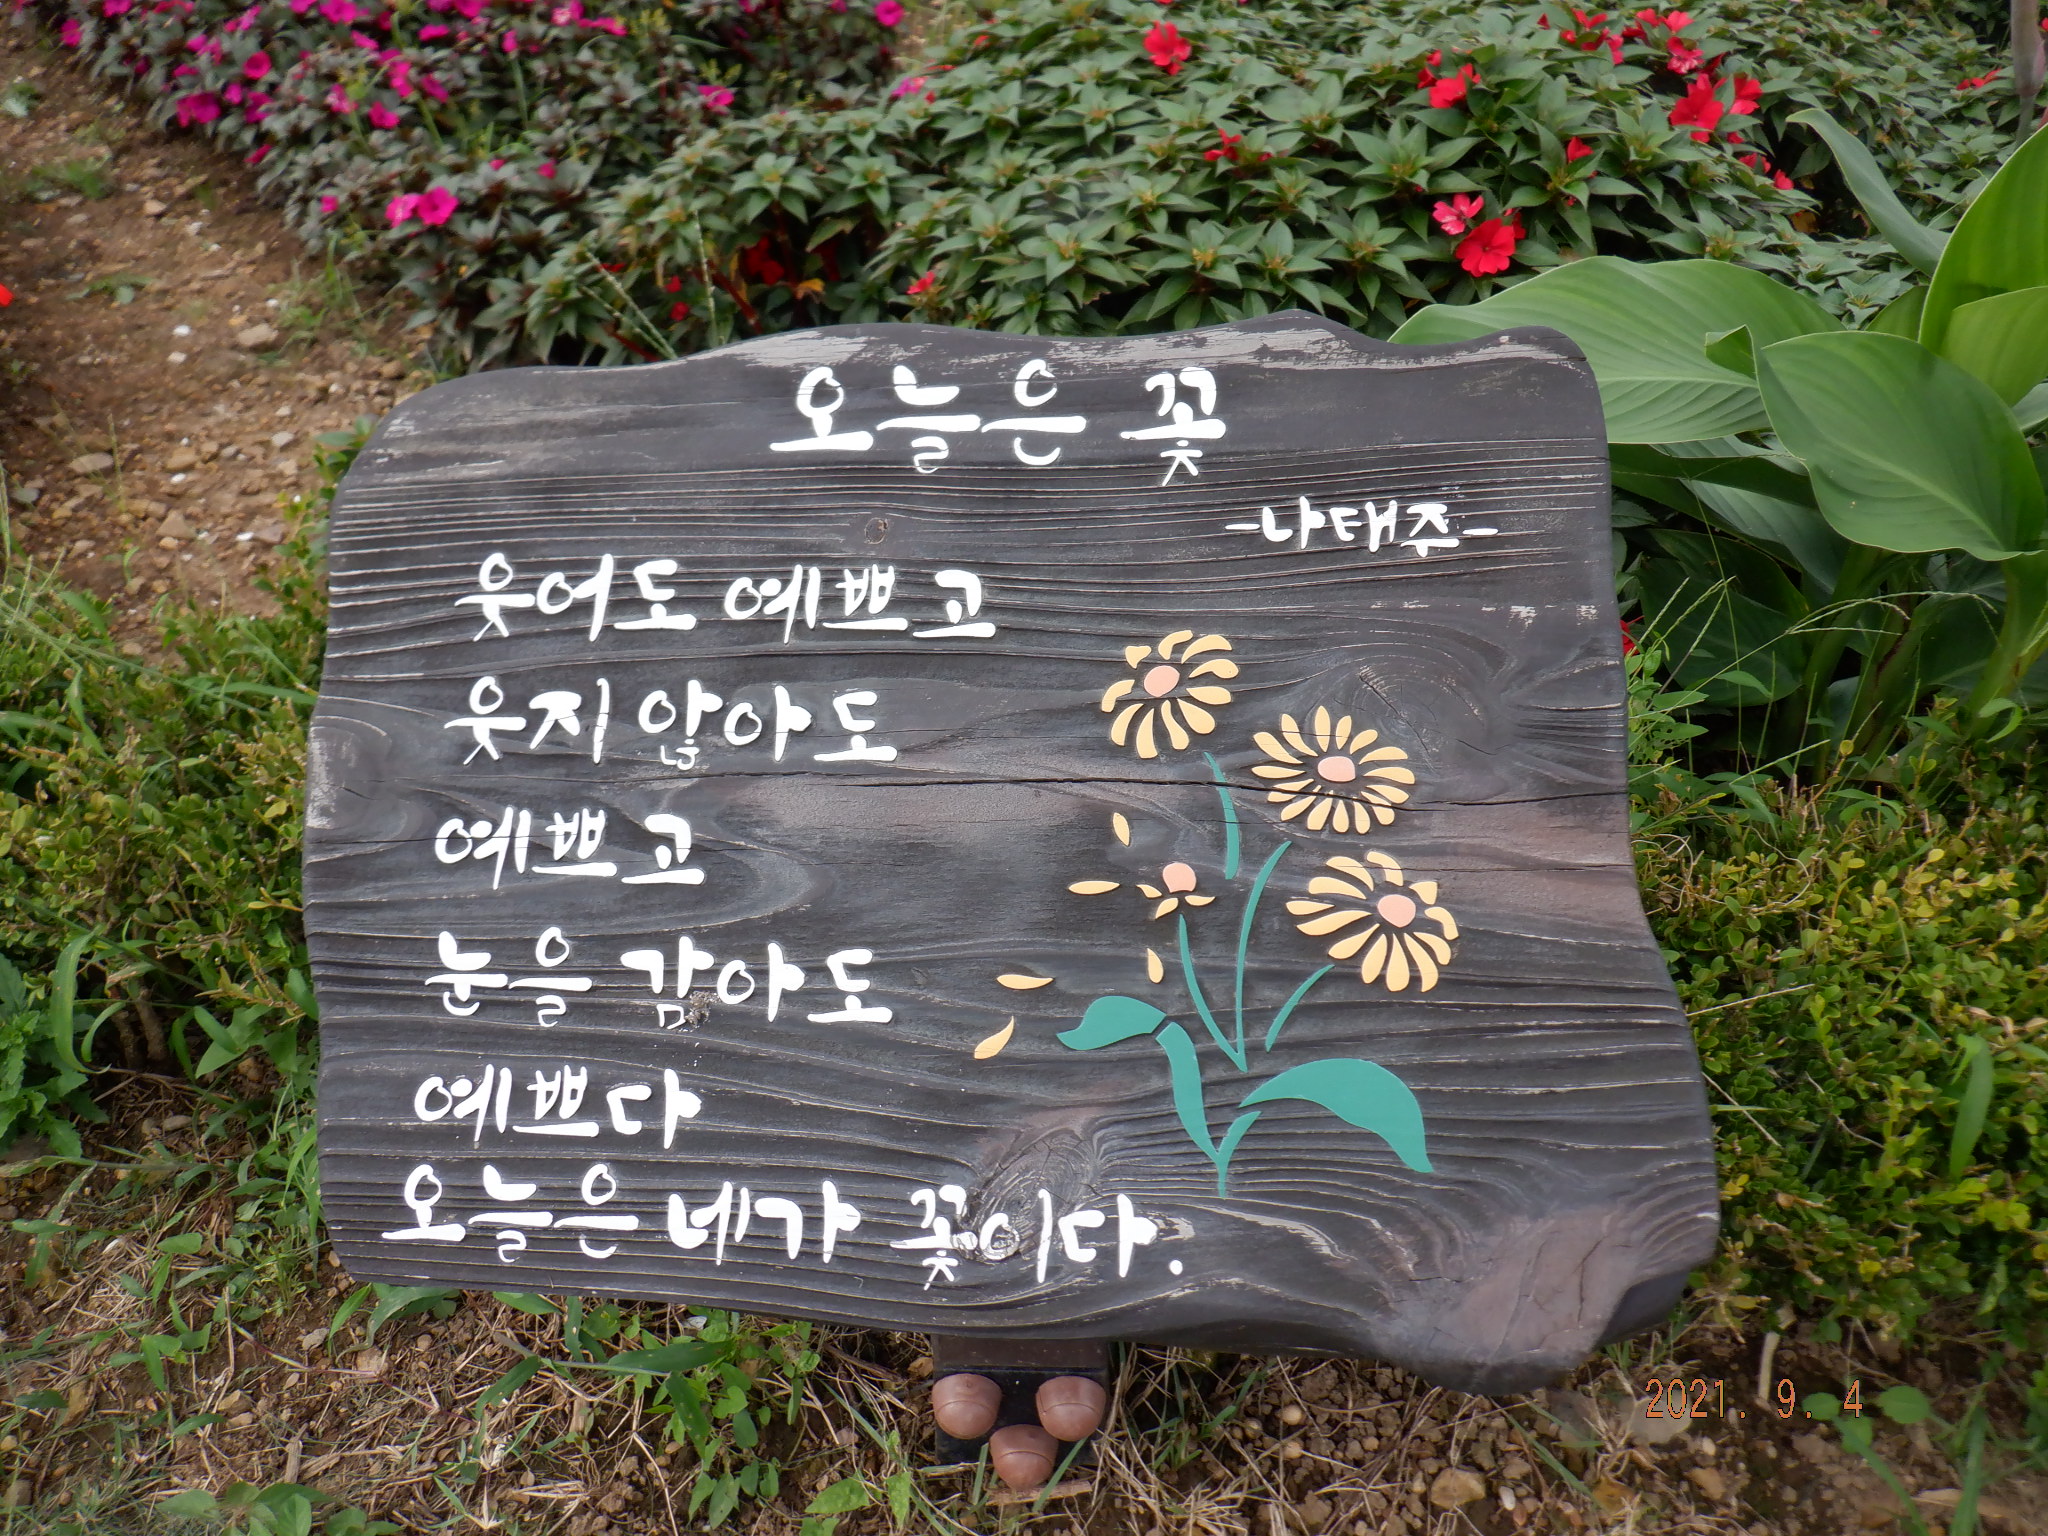 오늘은 꽃
-나태주-
웃어도 예쁘고
웃지 않아도
예쁘고
눈을 감아도
예쁘다
오늘은 네가 꽃이다.
2021. 9. 4